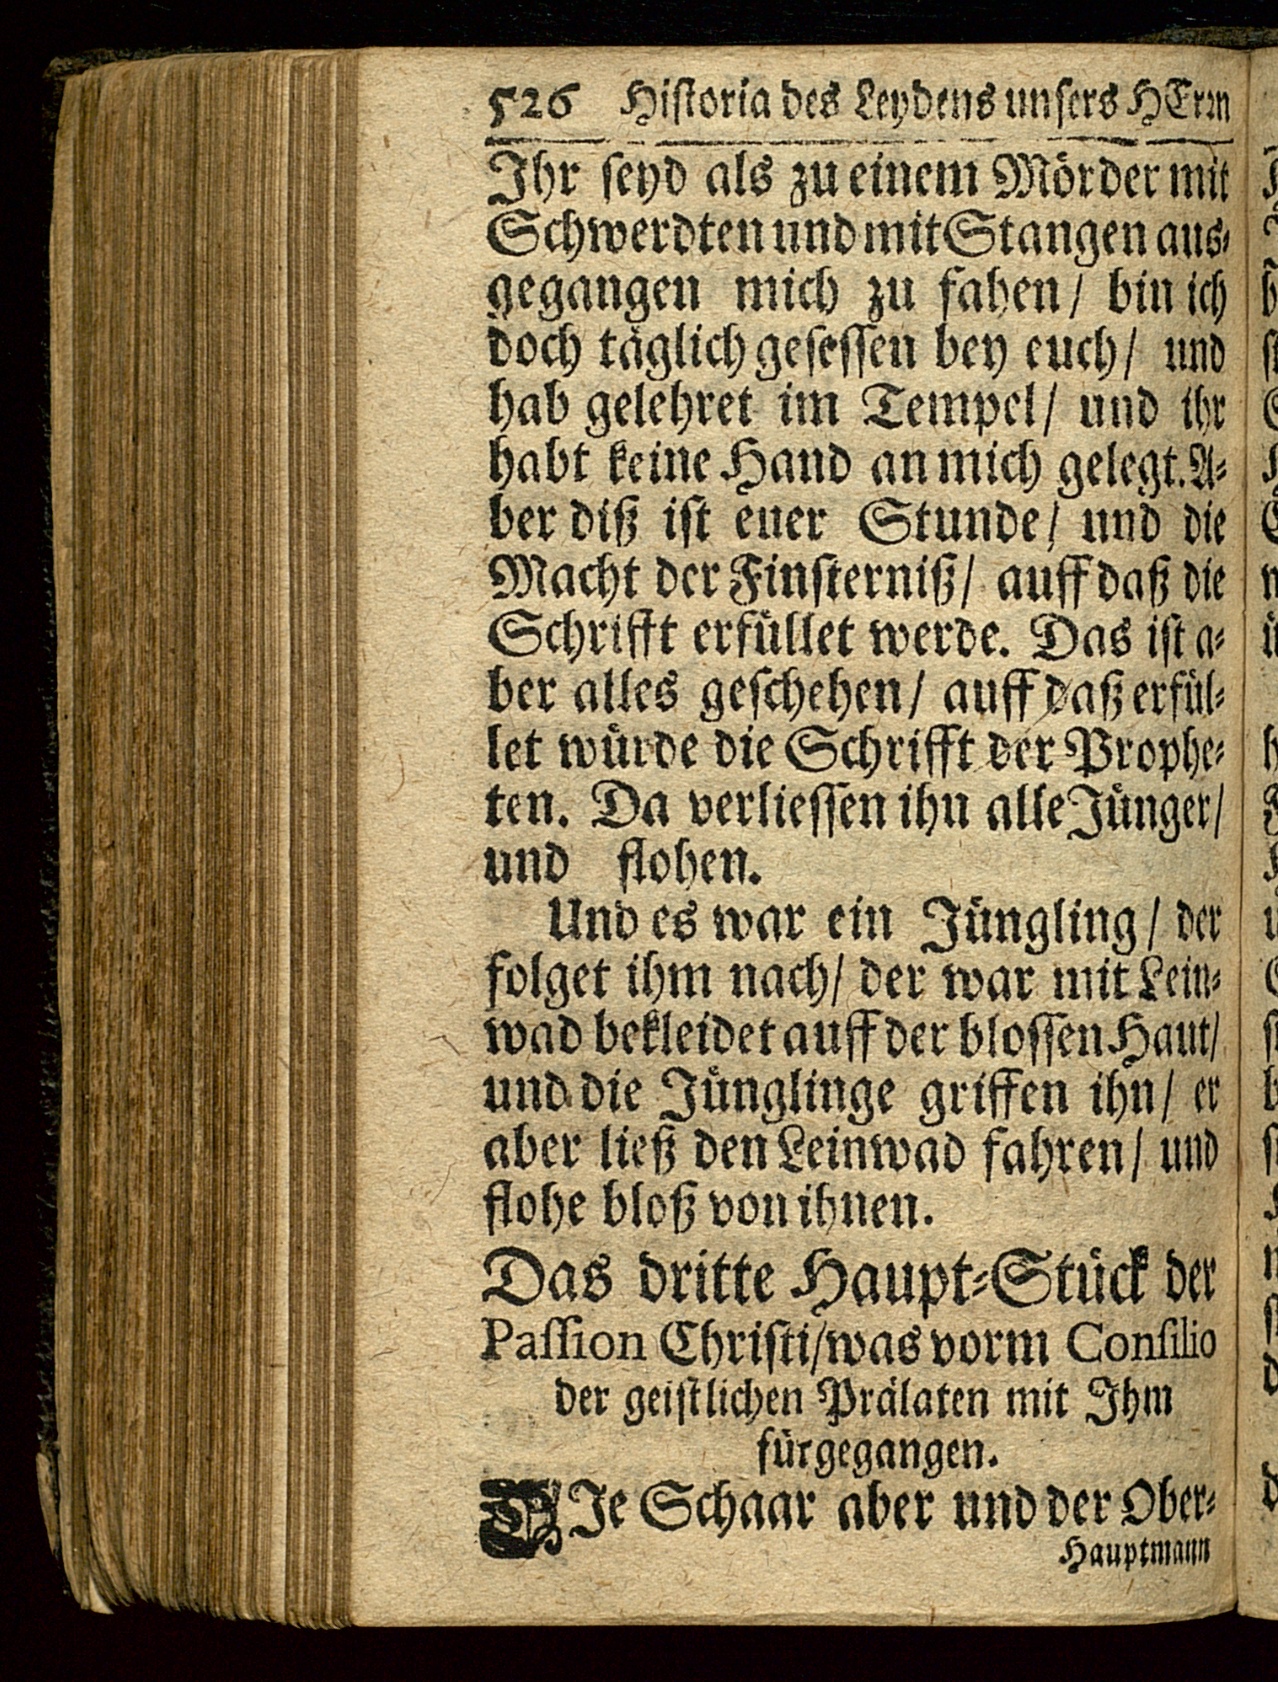 526 Historia des Leydens unsers HErrn
Ihr seyd als zu einem Mörder mit
Schwerdten und mit Stangen aus-
gegangen mich zu fahen/ bin ich
doch täglich gesessen bey euch/ und
hab gelehret im Tempel/ und ihr
habt keine Hand an mich gelegt. A-
ber diß ist euer Stunde/ und die
Macht der Finsterniß/ auff daß die
Schrifft erfüllet werde. Das ist a-
ber alles geschehen/ auff daß erfül-
let würde die Schrifft der Prophe-
ten. Da verliessen ihn alle Jünger/
und flohen.
Und es war ein Jüngling/ der
folget ihm nach/ der war mit Lein-
wad bekleidet auff der blossen Haut/
und die Jünglinge griffen ihn/ er
aber ließ den Leinwad fahren/ und
flohe bloß von ihnen.
Das dritte Haupt-Stück der
Passion Christi/ was vorm Consilio
der geistlichen Prälaten mit Ihm
fürgegangen.
DIe Schaar aber und der Ober-
Hauptmann